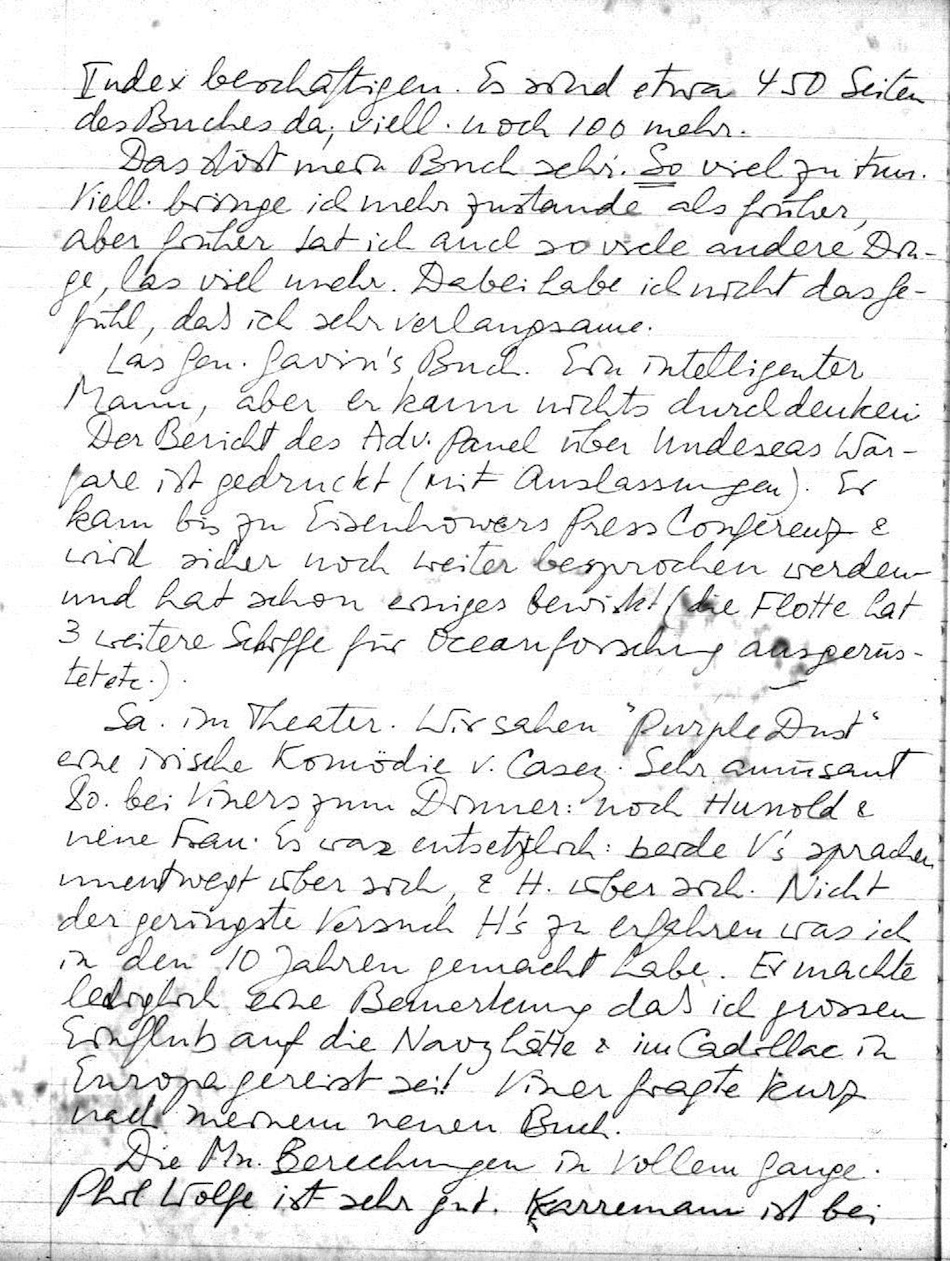 Index beschäftigen. Es sind etwa 450 Seiten
des Buches da, viell. noch 100 mehr.
Das stört mein Buch sehr. So viel zu tun.
Viell. bringe ich mehr zustande als früher,
aber früher tat ich auch so viele andere Din-
ge, las viel mehr. Dabei habe ich nicht das Ge-
fühl, daß ich sehr verlangsame.
Las Gen. Gavin's Buch. Ein intelligenter
Mann, aber er kann nichts durchdenken
Der Bericht des Adv. Panel über Underseas War-
fare ist gedruckt (mit Auslassungen). Er
kam bis zu Eisenhowers Press Conferenz &
wird sicher noch weiter besprochen werden
und hat schon einiges bewirkt (die Flotte hat
3 weitere Schiffe für Oceanforschung ausgerüs-
tet etc.).
Sa. im Theater. Wir sahen "Purple Dust"
eine irische Komödie v. Casey. Sehr amüsant
So. bei Viners zum Dinner: noch Hunold &
neue Frau. Es war entsetzlich: beide V's sprachen
unentwegt über sich, & H. über sich. Nicht
der geringste Versuch H's zu erfahren was ich
in den 10 Jahren gemacht habe. Er machte
lediglich eine Bemerkung daß ich grossen
Einfluß auf die Navy hätte & im Cadillac in
Europa gereist sei! Viner fragte kurz
nach meinem neuen Buch.
Die Mn. Berechnungen in vollem Gange.
Phil Wolfe ist sehr gut. Karremann ist bei